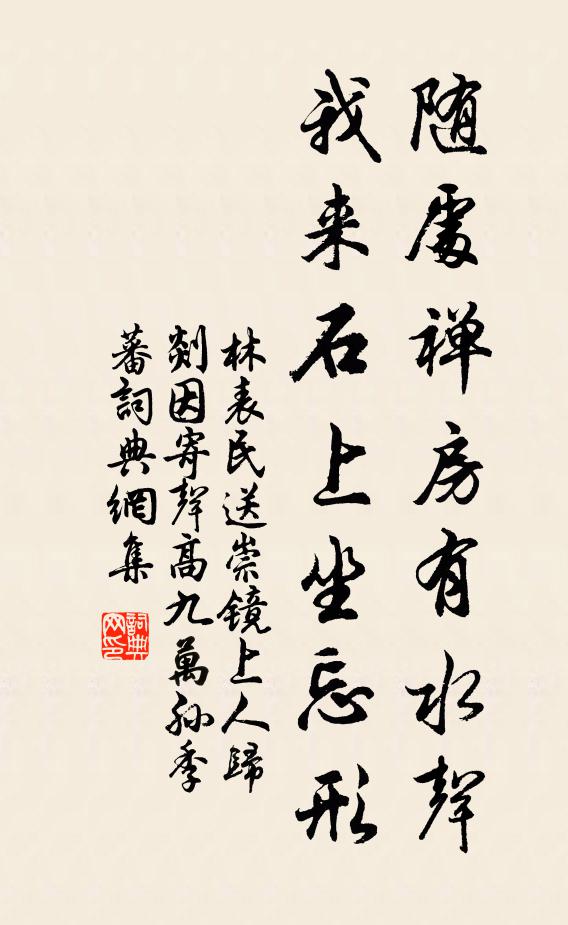 随處禅房有水聲
我来石上坐忘形
林表民送崇鏡上人歸
剡因寄聲高九萬孫季
蕃詞典網集
詞典网印